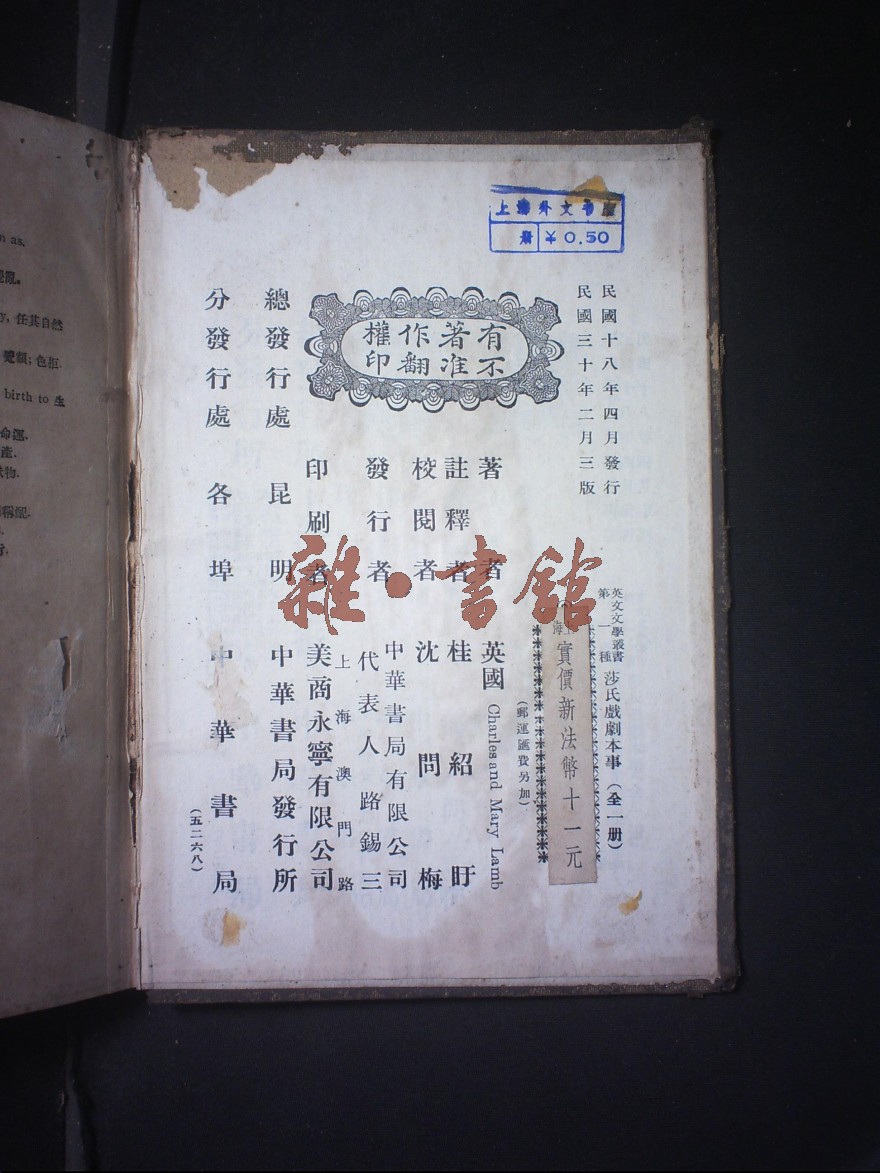 上海外文書店
册 ¥0.50
民國十八年四月發行
民國三十年二月三版
有著作權
不准翻印
英文文學叢書
第一種
莎氏戲劇本事（全一册）
實價新法幣十一元
（郵運匯費另加）
著者 英國 Charles and Mary Lamb
註釋者 桂紹盱
校閱者 沈問梅
發行者 中華書局有限公司
代表人路錫三
上海澳門路
印刷者 美商永寧有限公司
總發行處 昆明 中華書局發行所
分發行處 各埠 中華書局
（五二六八）
雜·書館
n as.
任其自然
birth to 生
命運.
產.